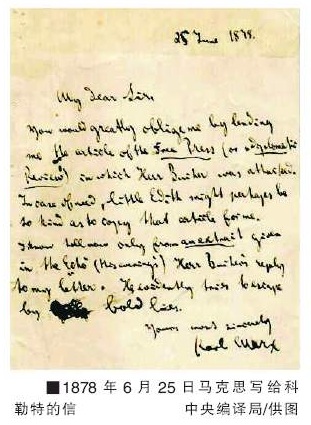 25 June 1878.
My dear Sir
You would greatly oblige me by lending
me the article of the Free Press (or Diplomatic
Review) in which Herr Bucher was attacked.
In case of need, little Edith might perhaps be
so kind as to copy that article for me.
I know till now only from an extract given
in the Echo (this evening) Herr Bucher's reply
to my letter. He evidently tries
by bold lies.
Yours most sincerely
Karl Marx
■1878 年 6 月 25 日马克思写给科
勒特的信 中央编译局/供图